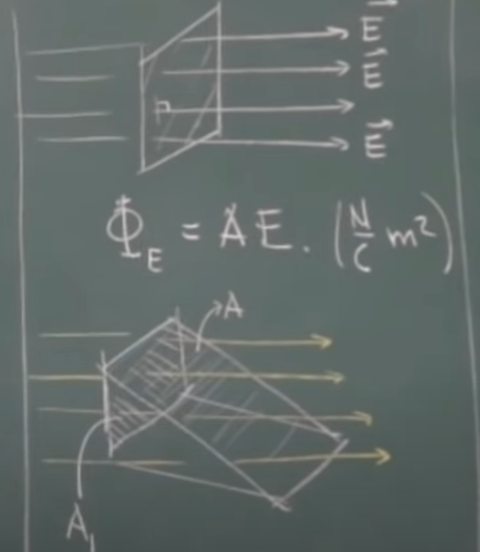 E⃗
E⃗
E⃗
Φ_E = A E. (N/C m²)
A
A₁